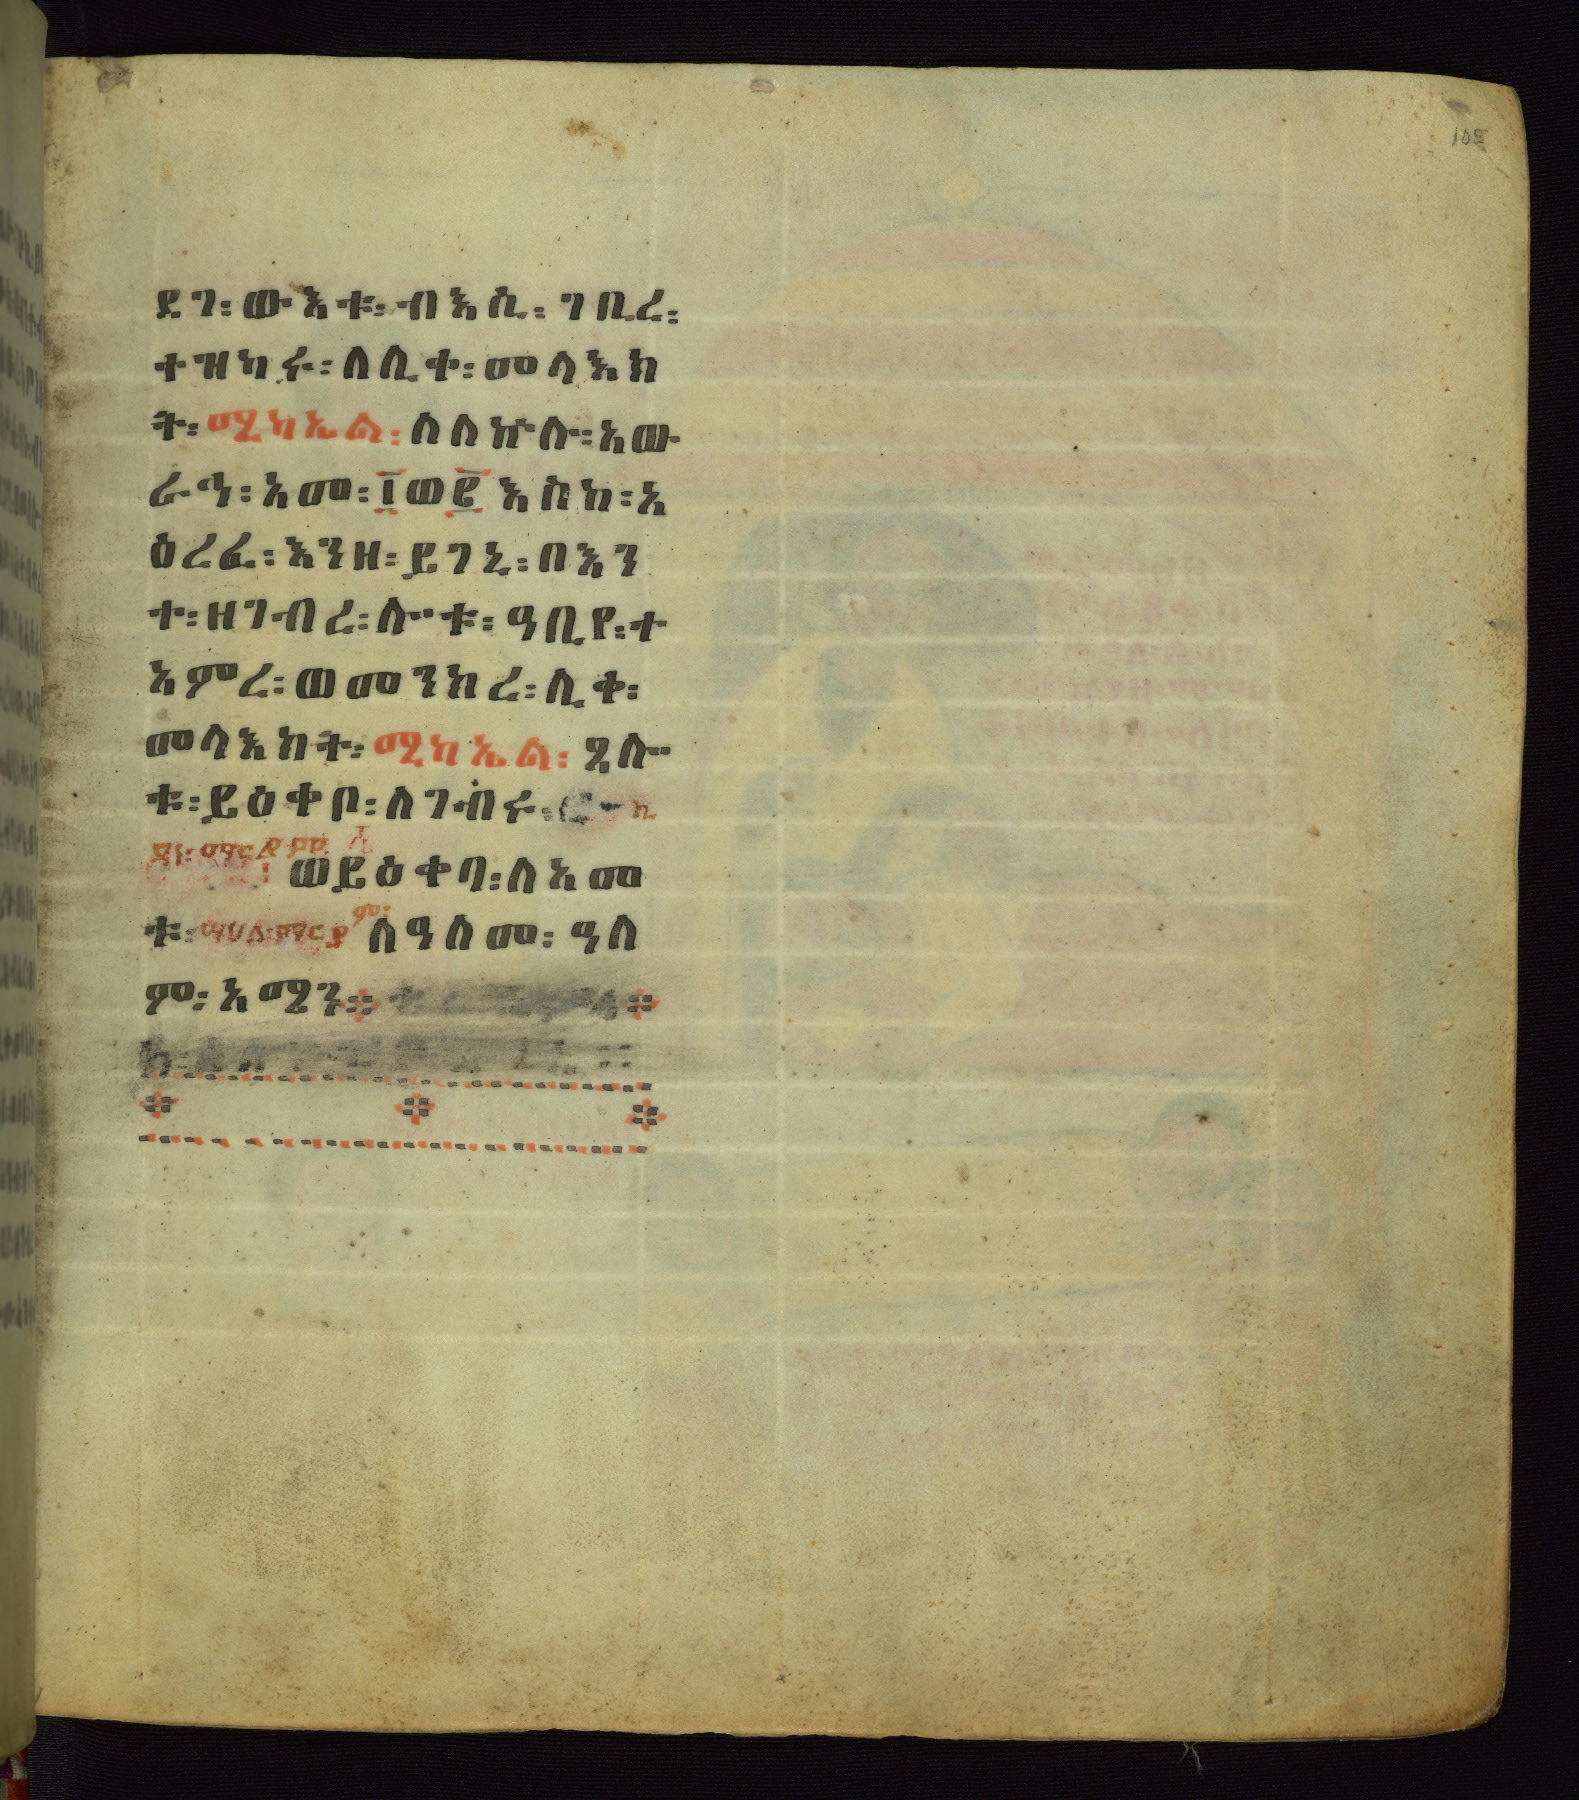 105
ደገ፡ ውእቱ፡ ብእሲ፡ ገቢረ፡
ተዝካሩ፡ ለሊቀ፡ መላእክ
ት፡ ሚካኤል፡ ለለኵሉ፡ አው
ራኅ፡ አመ፡ ፲ወ፪ እስከ፡ አ
ዕረፈ፡ እንዘ፡ ይገኒ፡ በእን
ተ፡ ዘገብረ፡ ሎቱ፡ ዓቢየ፡ ተ
አምረ፡ ወመንክረ፡ ሊቀ፡
መላእክት፡ ሚካኤል፡ ጸሎ
ቱ፡ ይዕቀቦ፡ ለገብሩ፡
ወይዕቀባ፡ ለአመ
ቱ፡ ለዓለመ፡ ዓለ
ም፡ አሜን፨